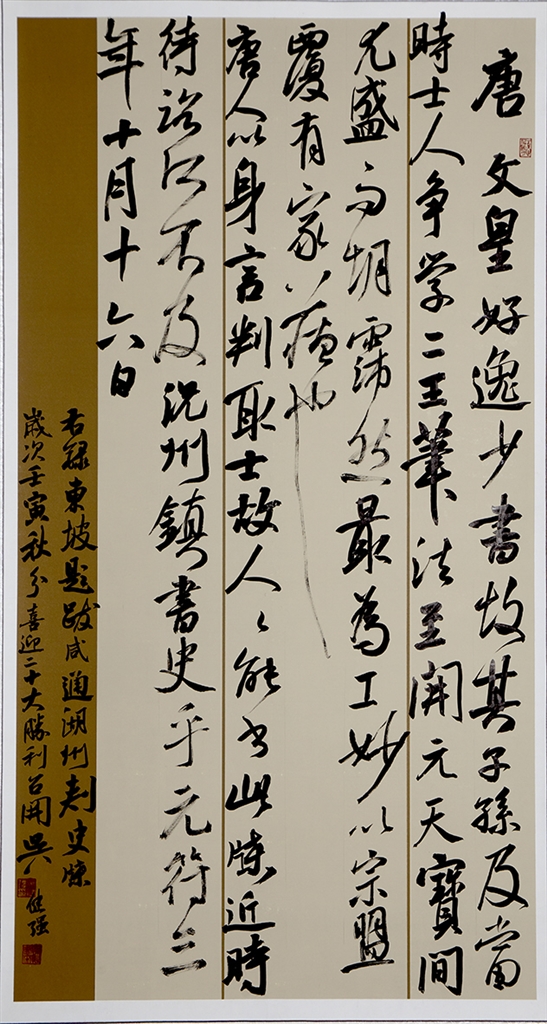 唐文皇好逸少書故其子孫及當
時士人争学二王筆法至開元天寶間
尤盛而胡霈然最為工妙以宗盟
覆有家藏也
唐人以身言判取士故人々能書此牒近時
待詔所不及况州鎮書史乎元符三
年十月十六日
右録東坡題跋咸通湖州刺史牒
歲次壬寅秋分喜迎二十大勝利召開吳强